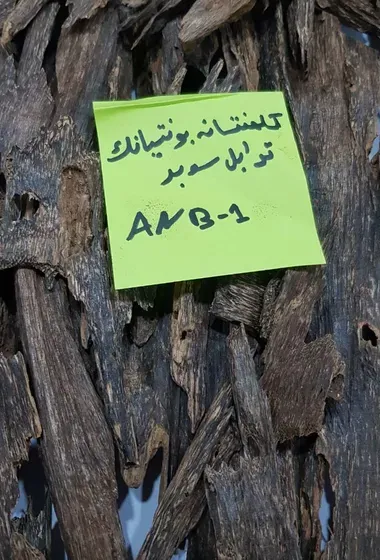 كلمنتانه بونتيانك
توابل سوبر
ANB-1